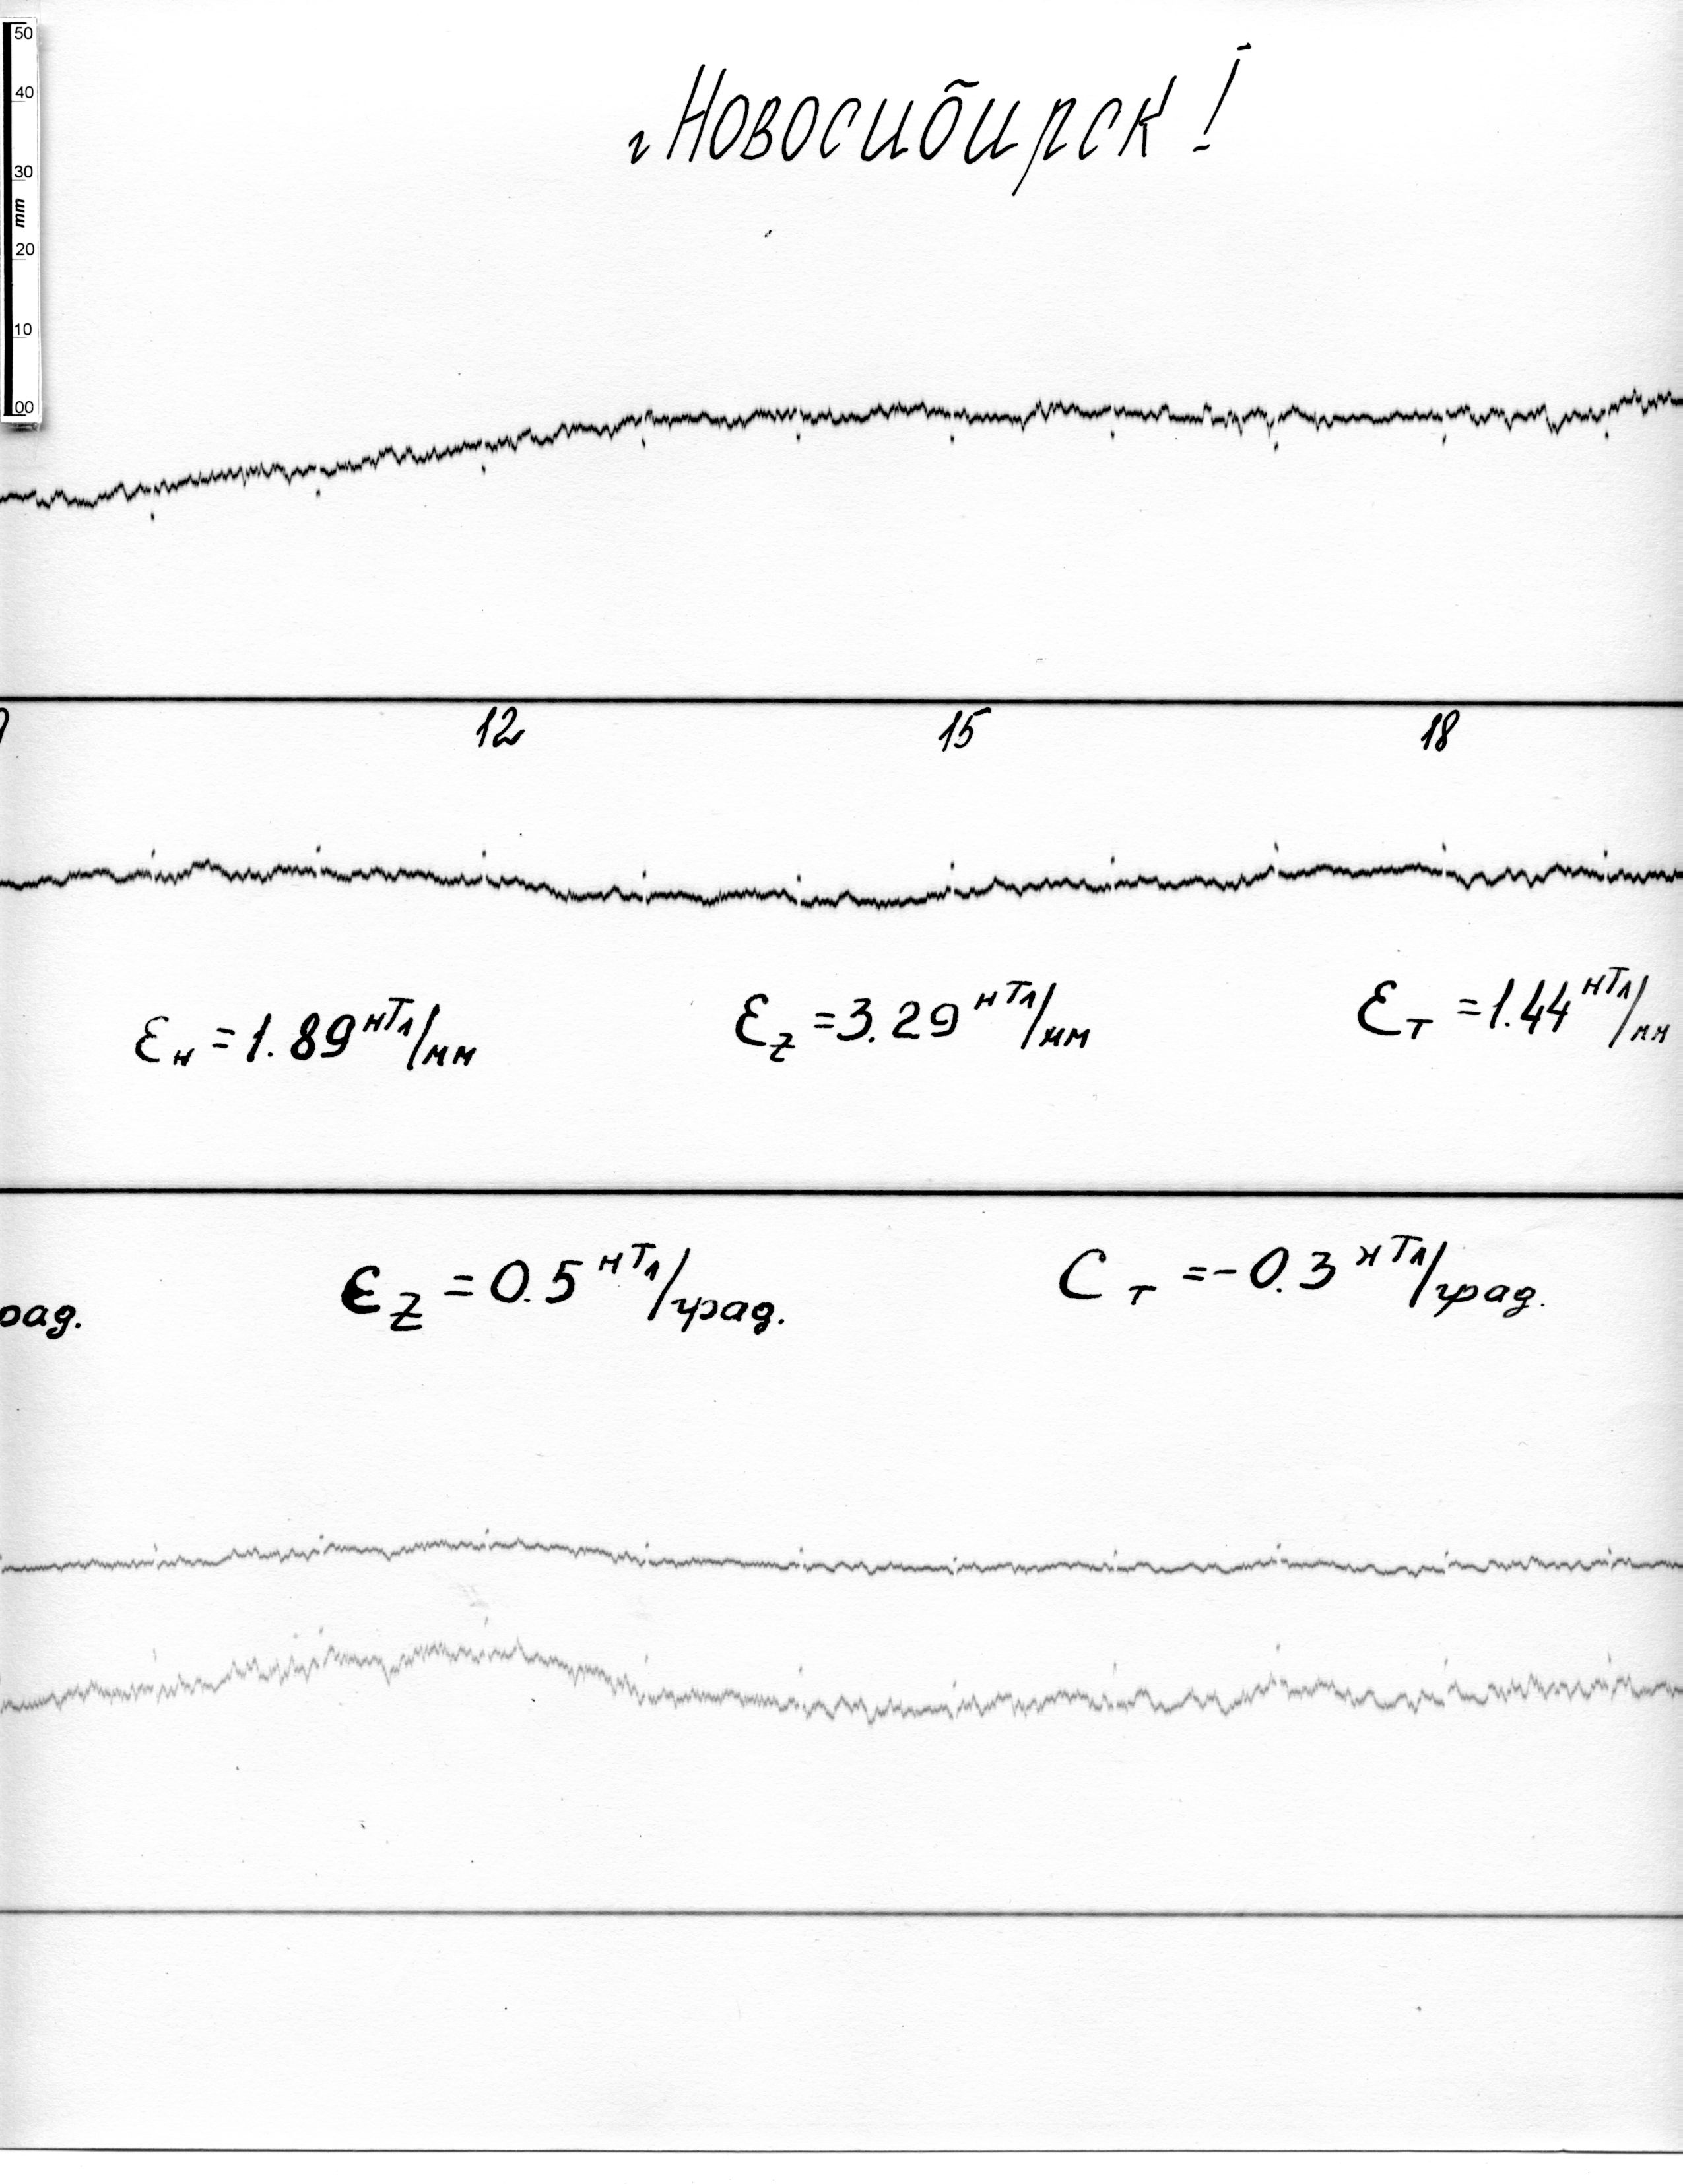 50
40
30
mm
20
10
00
г Новосибирск!
12 15 18
Ɛн = 1.89 нТл/мм Ɛz = 3.29 нТл/мм Ɛт = 1.44 нТл/мм
рад. Ɛz = 0.5 нТл/град. Cт = -0.3 нТл/град.